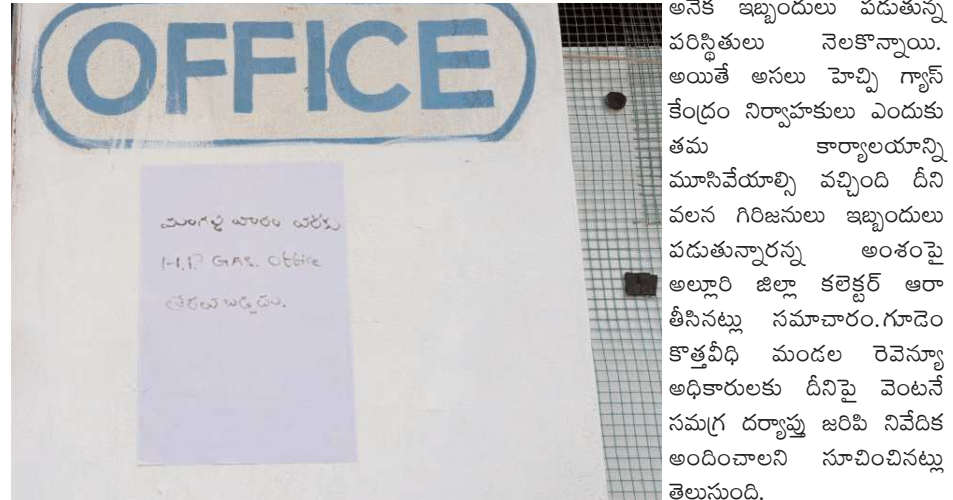 OFFICE
మంగళ వారం వరకు
H.P GAS. Office
తెరవబడదు.
అనేక ఇబ్బందులు పడుతున్న
పరిస్థితులు నెలకొన్నాయి.
అయితే అసలు హెచ్పి గ్యాస్
కేంద్రం నిర్వాహకులు ఎందుకు
తమ కార్యాలయాన్ని
మూసివేయాల్సి వచ్చింది దీని
వలన గిరిజనులు ఇబ్బందులు
పడుతున్నారన్న అంశంపై
అల్లూరి జిల్లా కలెక్టర్ ఆరా
తీసినట్లు సమాచారం.గూడెం
కొత్తవీధి మండల రెవెన్యూ
అధికారులకు దీనిపై వెంటనే
సమగ్ర దర్యాప్తు జరిపి నివేదిక
అందించాలని సూచించినట్లు
తెలుసుంది.